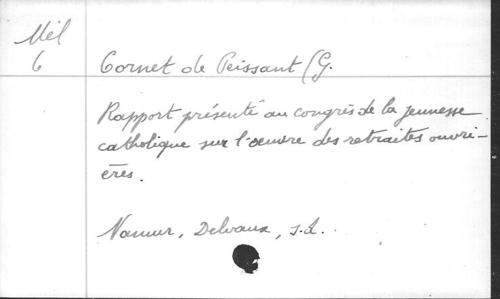 Mél
6
Cornet de Peissant (G.
Rapport présenté au congrès de la jeunesse
catholique sur l'oeuvre des retraites ouvri-
ères.
Namur, Delvaux, s.d.